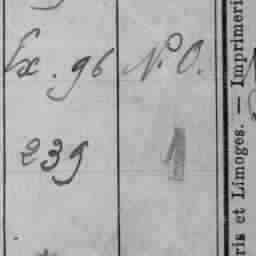 Ex. 96 N.º O.
239 1
ris et Limoges. — Imprimeri